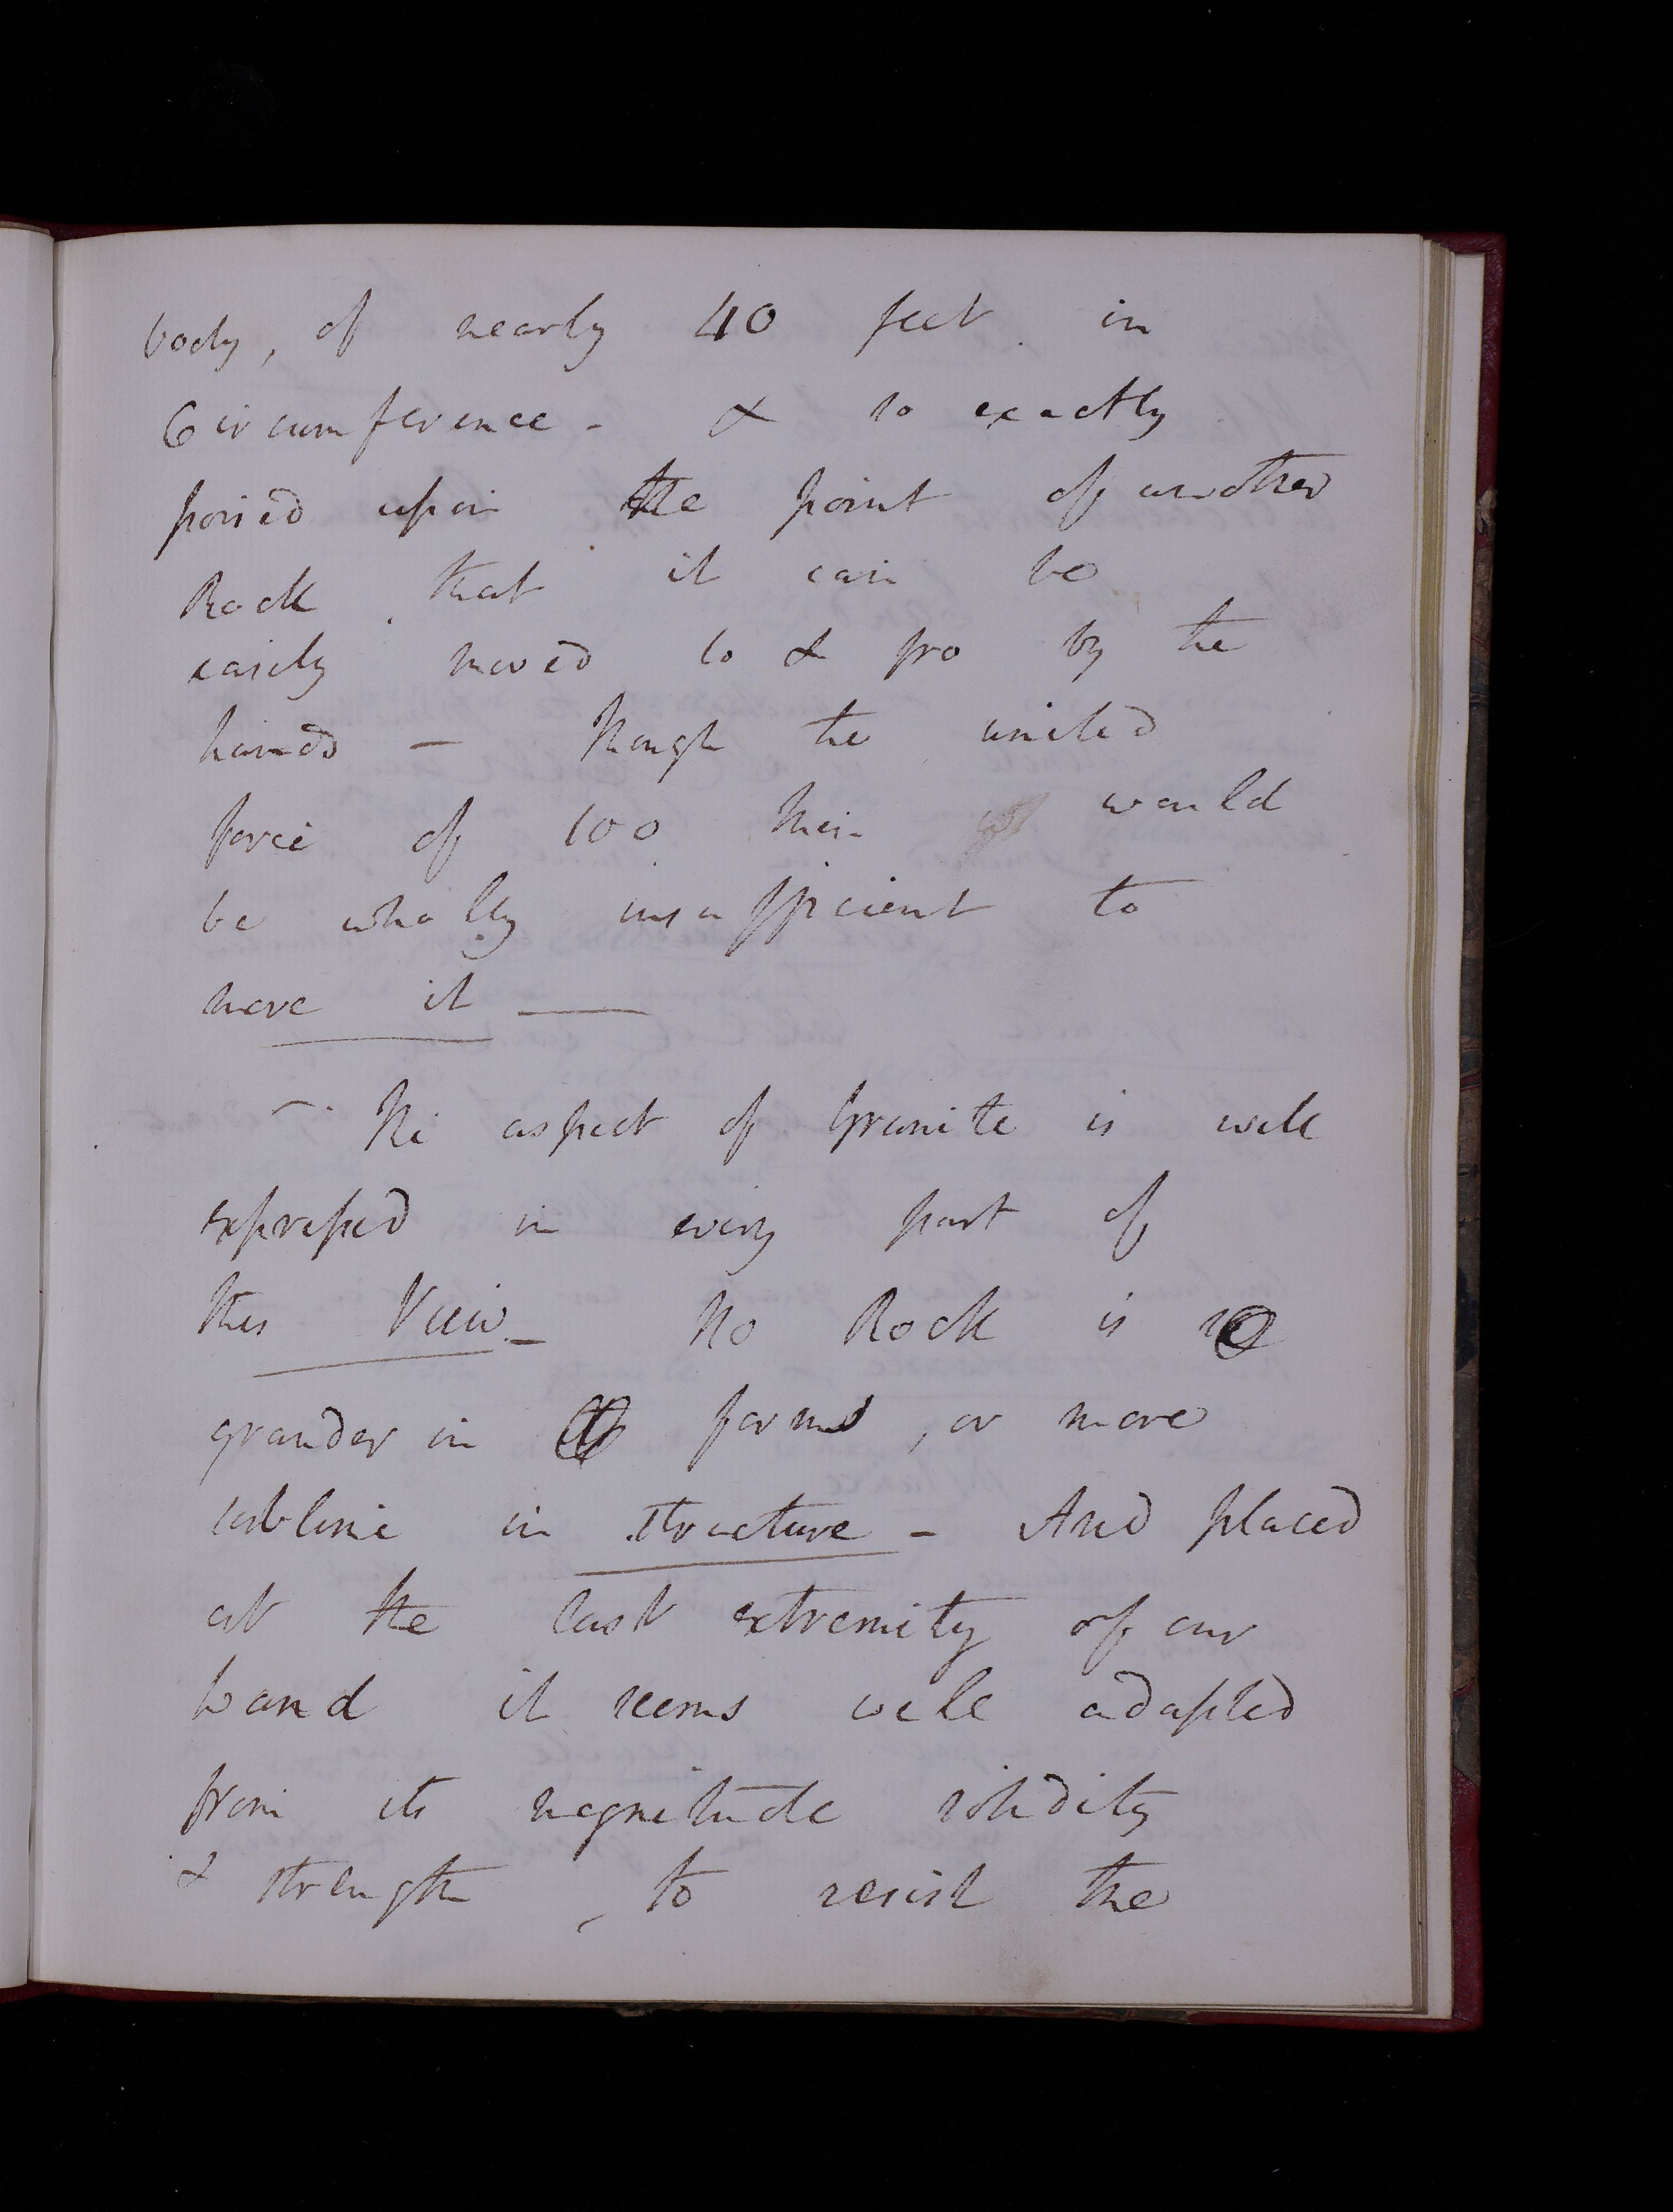 body, of nearly 40 feet in
Circumference - & so exactly
poised upon the point of another
Rock that it can be
easily moved to & fro by the
hands - though the united
force of 100 Men would
be wholly insufficient to
move it -
- The aspect of Granite is well
expressed in every part of
this View - No Rock is
grander in forms, or more
sublime in structure - And placed
at the last extremity of our
Land it seems well adapted
from its magnitude solidity
& strength, to resist the